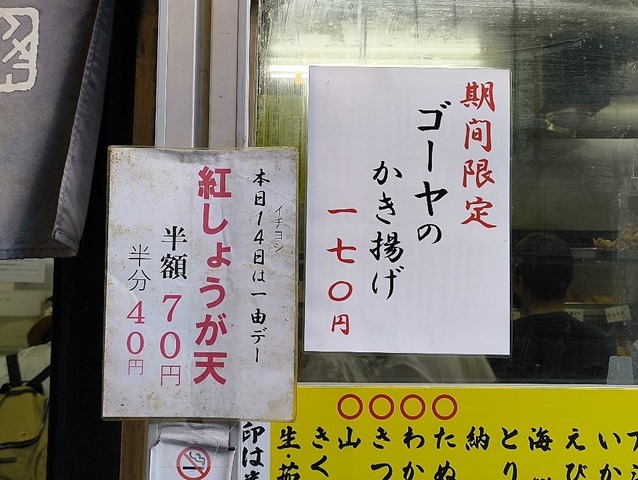 期間限定
ゴーヤの
かき揚げ
一七〇円
イチヨシ
本日14日は一由デー
紅しょうが天
半額70円
半分40円
〇〇〇〇
いか
えび
海
とり
納
たぬ
わか
きつ
山
きく
生・茄
印は